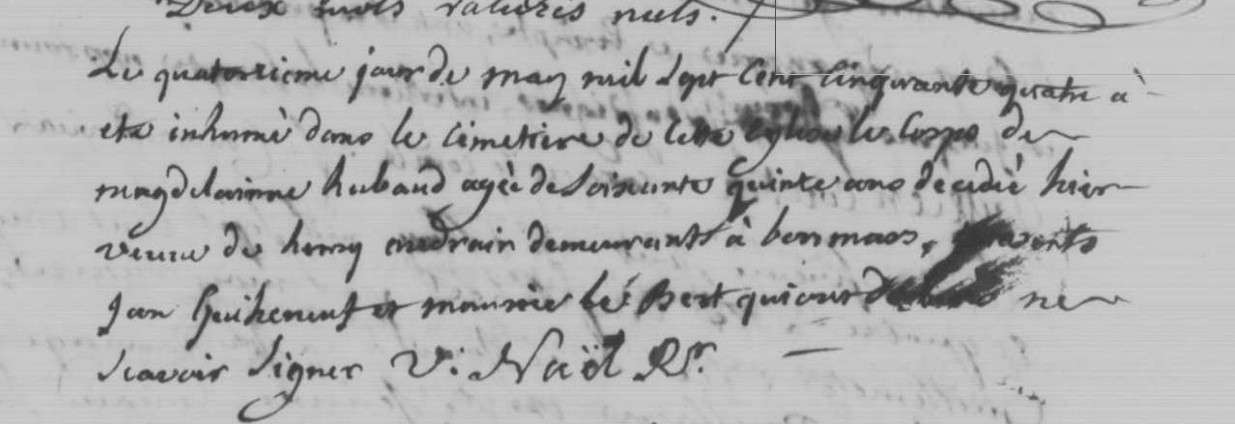 Deux mots raturés nuls.
Le quatorzieme jour de may mil sept cent cinquante quatre à
eté inhumé dans le cimetiere de cette eglise le corps de
magdelainne hubaud agèe de soisente quinze ans décédié hier
veuve de henry audrain demeurante à benmaos, presents
Jan Guiheneuf et maurice le Bert qui ont ne
scavoir signer V: Naöl Rr.